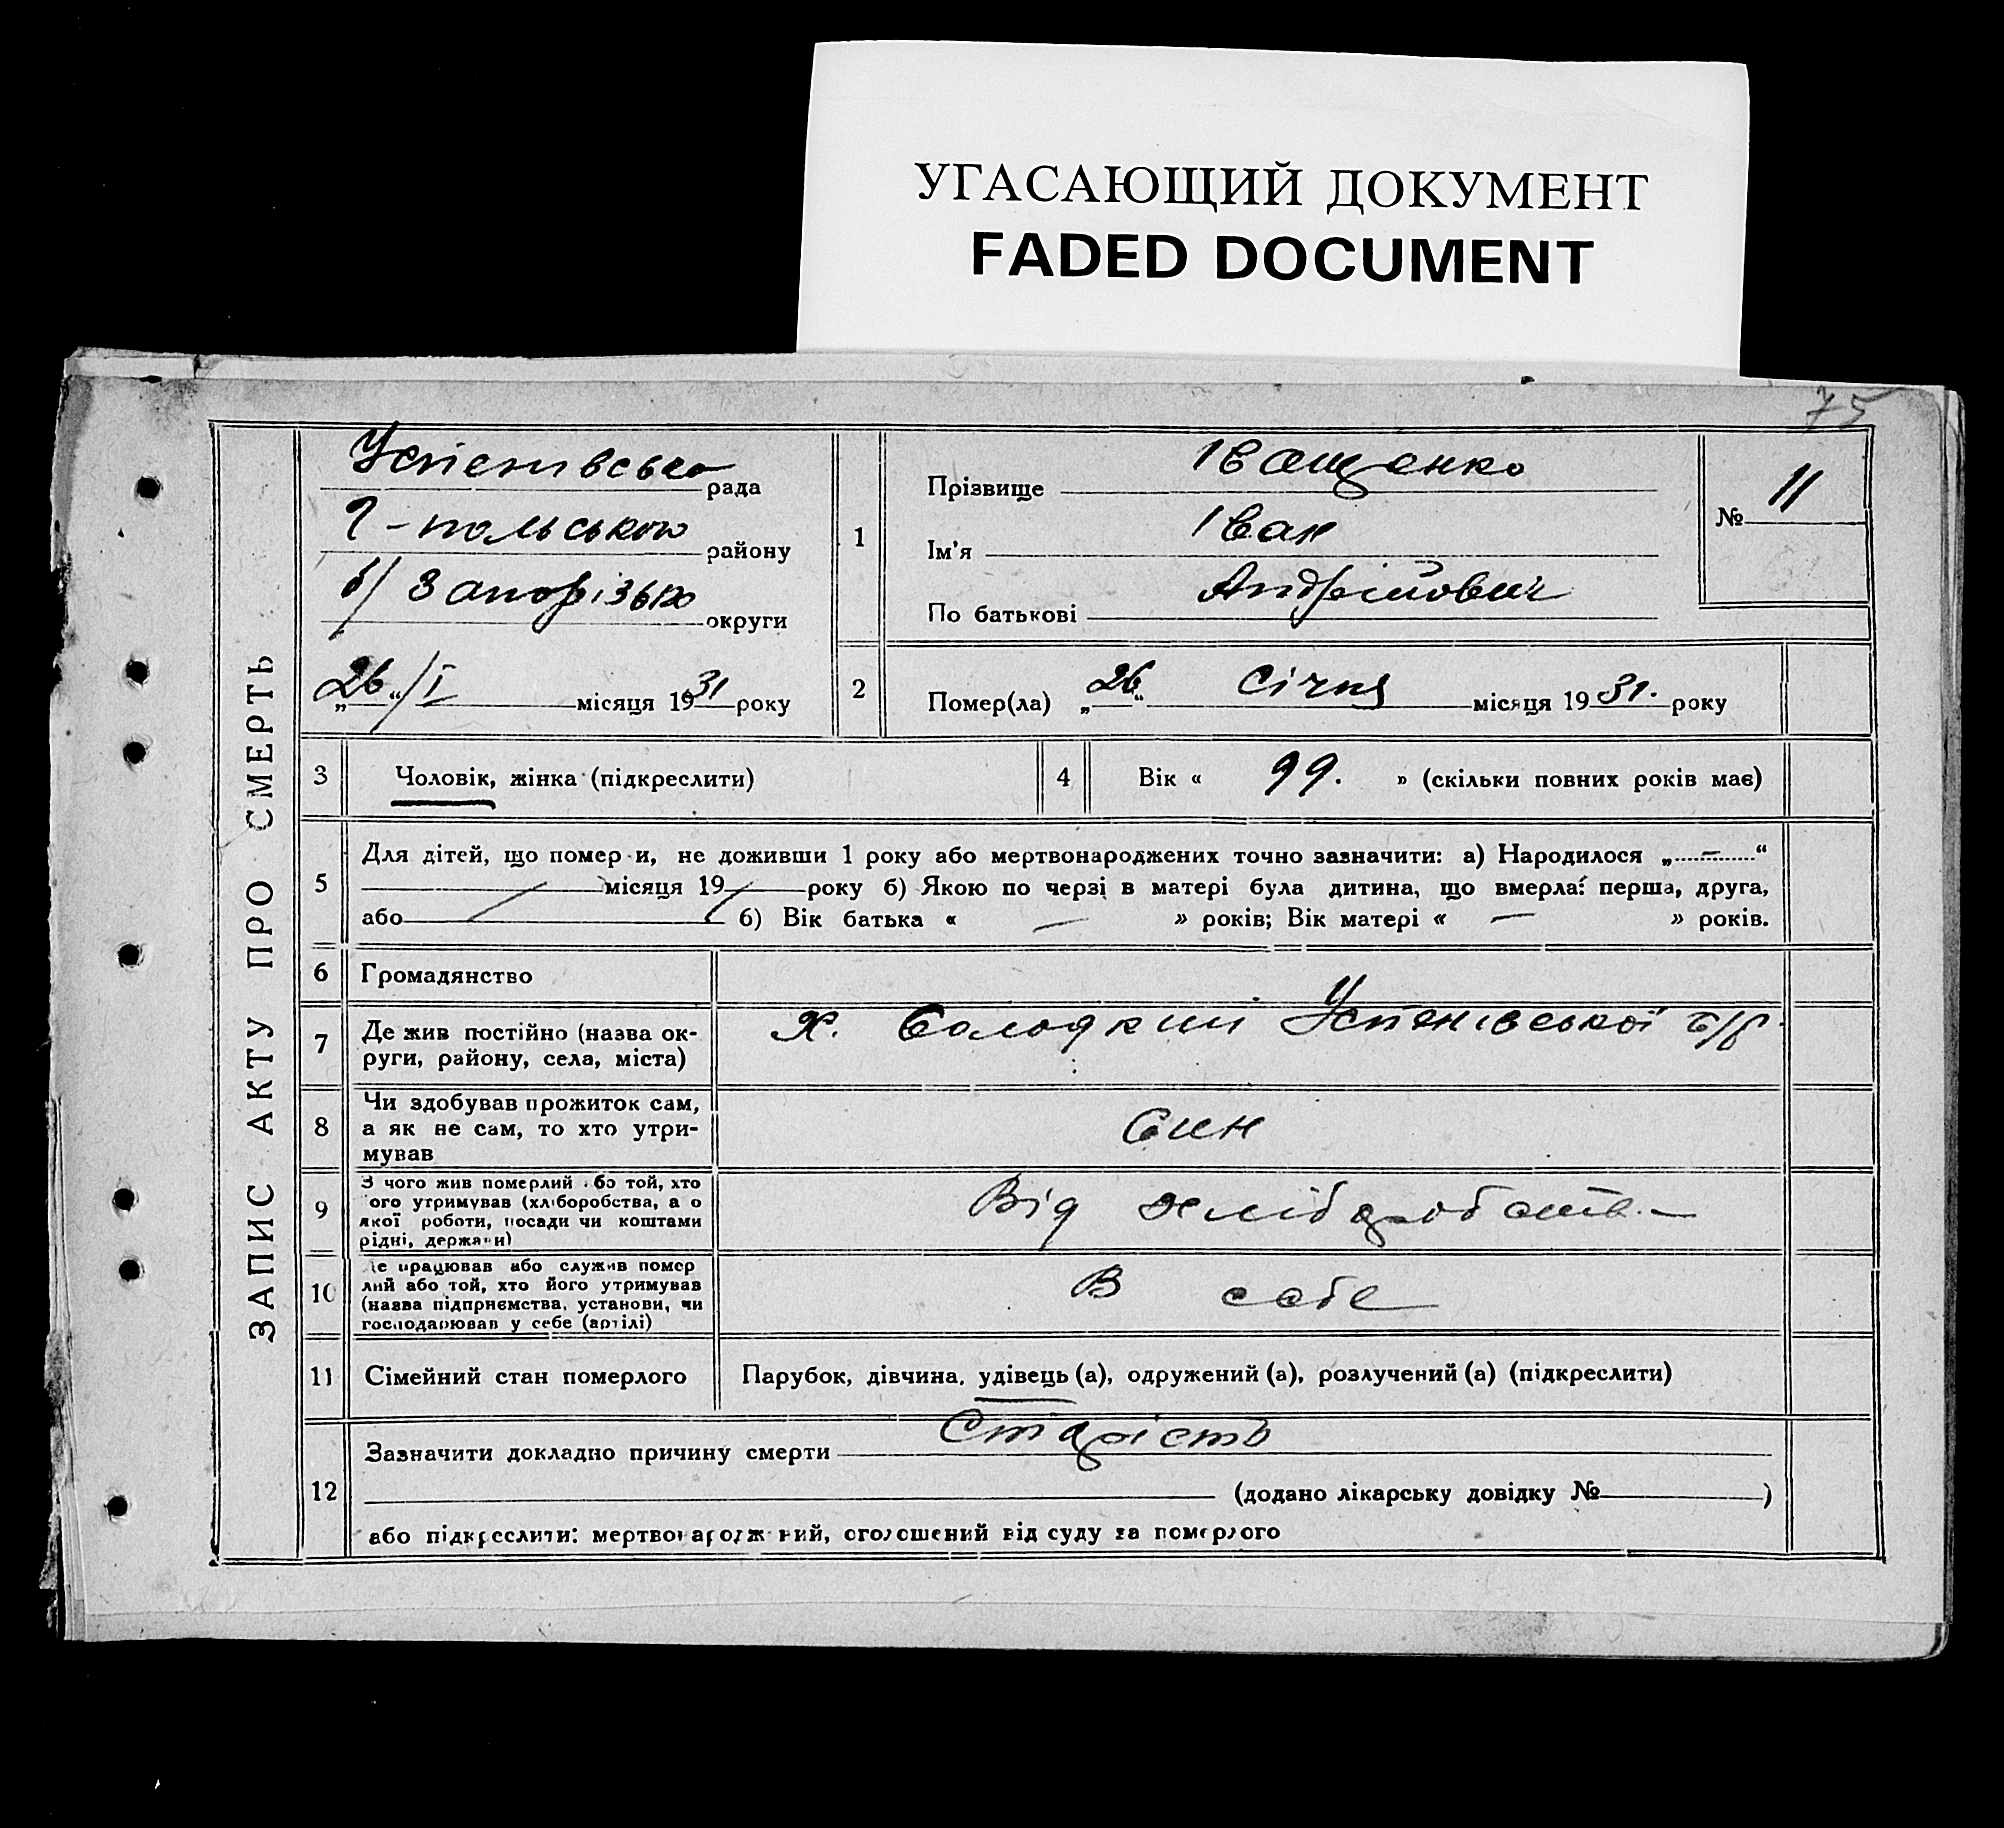 УГАСАЮЩИЙ ДОКУМЕНТ
FADED DOCUMENT
75
ЗАПИС АКТУ ПРО СМЕРТЬ
Успенівська рада
Г-польського району
б/ Запорізько округи
„26“/I місяця 1931 року
1
Прізвище Іващенко
Ім'я Іван
По батькові Андрійович
№ 11
2 Помер(ла) „26“ Січня місяця 1931. року
3 Чоловік, жінка (підкреслити)
4 Вік « 99. » (скільки повних років має)
5 Для дітей, що помер и, не доживши 1 року або мертвонароджених точно зазначити: а) Народилося „ — “
місяця 19 року б) Якою по черзі в матері була дитина, що вмерла: перша, друга,
або б) Вік батька « — » років; Вік матері « — » років.
6 Громадянство
7 Де жив постійно (назва ок-
руги, району, села, міста)
Х. Солодкий Успенівської с/р.
8 Чи здобував прожиток сам,
а як не сам, то хто утри-
мував
Син
9 З чого жив померлий або той, хто
ого утримував (хліборобства, а о
якої роботи, посади чи коштами
рідні, держави)
Від хліборобств. —
10 Де працював або служив помер
лий або той, хто його утримував
(назва підприємства, установи, чи
господарював у себе (артілі)
В себе
11 Сімейний стан померлого
Парубок, дівчина, удівець (а), одружений (а), розлучений (а) (підкреслити)
12 Зазначити докладно причину смерти Старість
(додано лікарську довідку № )
або підкреслити: мертвонароджений, оголошений від суду за померлого